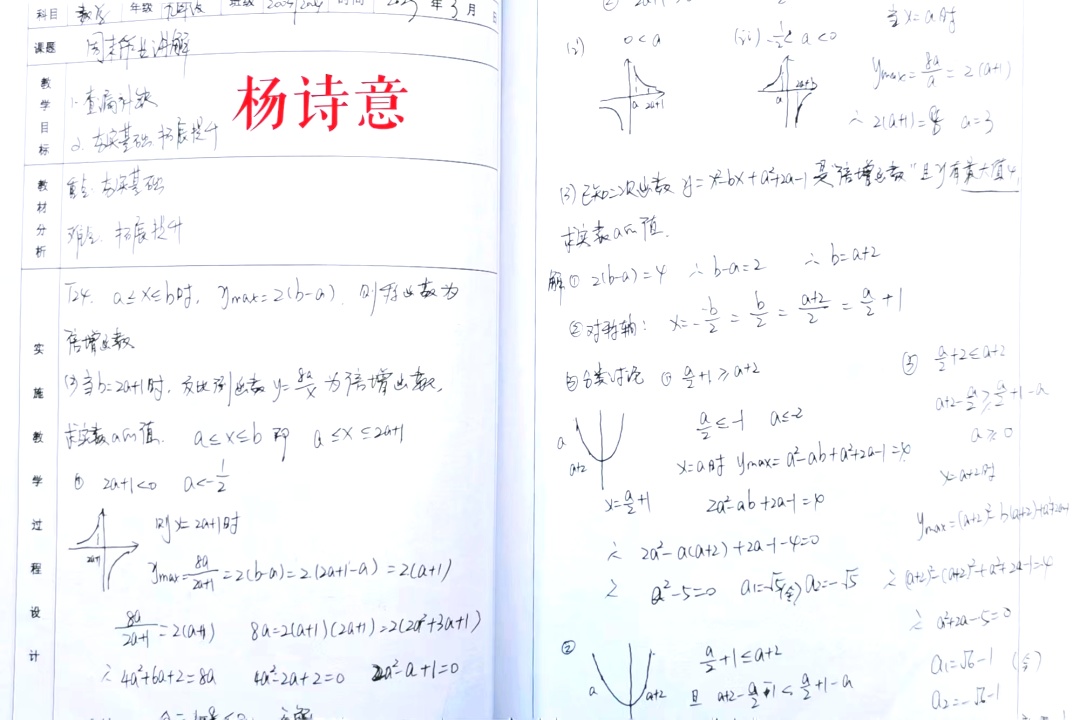 科目 数学 年级 九年级 班级 时间 年 3 月 日
课题 周末作业讲解
教学目标
1. 查漏补缺
2. 夯实基础 拓展提升
杨诗意
教材分析
重点: 夯实基础
难点: 拓展提升
实施教学过程设计
T24. a≤x≤b时, ymax=2(b-a). 则称函数为
倍增函数
(2)当b=2a+1时, 反比例函数y=8a/x为倍增函数,
求实数a的值. a≤x≤b 即 a≤x≤2a+1
① 2a+1<0 a<-1/2
2a+1
则x=2a+1时
ymax=8a/(2a+1)=2(b-a)=2(2a+1-a)=2(a+1)
8a/(2a+1)=2(a+1) 8a=2(a+1)(2a+1)=2(2a²+3a+1)
∴ 4a²+6a+2=8a 4a²-2a+2=0 2a²-a+1=0
②
(i) 0<a (ii) -1/2<a<0
a 2a+1
a 2a+1
当x=a时
ymax=8a/a=2(a+1)
∴ 2(a+1)=8 a=3
(3)已知二次函数y=x²-bx+a²+2a-1是"倍增函数"且y有最大值4,
求实数a的值.
解① 2(b-a)=4 ∴ b-a=2 ∴ b=a+2
②对称轴: x=-(-b)/2=b/2=(a+2)/2=a/2+1
③分类讨论 ① a/2+1≥a+2
a/2≤-1 a≤-2
a
a+2
x=a/2+1
x=a时 ymax=a²-ab+a²+2a-1=4
2a²-ab+2a-1=4
∴ 2a²-a(a+2)+2a-1-4=0
∴ a²-5=0 a₁=√5(舍) a₂=-√5
② a/2+1≤a+2
a
a+2
且 a+2-a/2-1<a/2+1-a
③ a/2+2≤a+2
a+2-a/2≥a/2+1-a
a≥0
x=a+2时
ymax=(a+2)²-b(a+2)+a²+2a-1
∴ (a+2)²-(a+2)²+a²+2a-1=4
∴ a²+2a-5=0
a₁=√6-1 (舍)
a₂=-√6-1